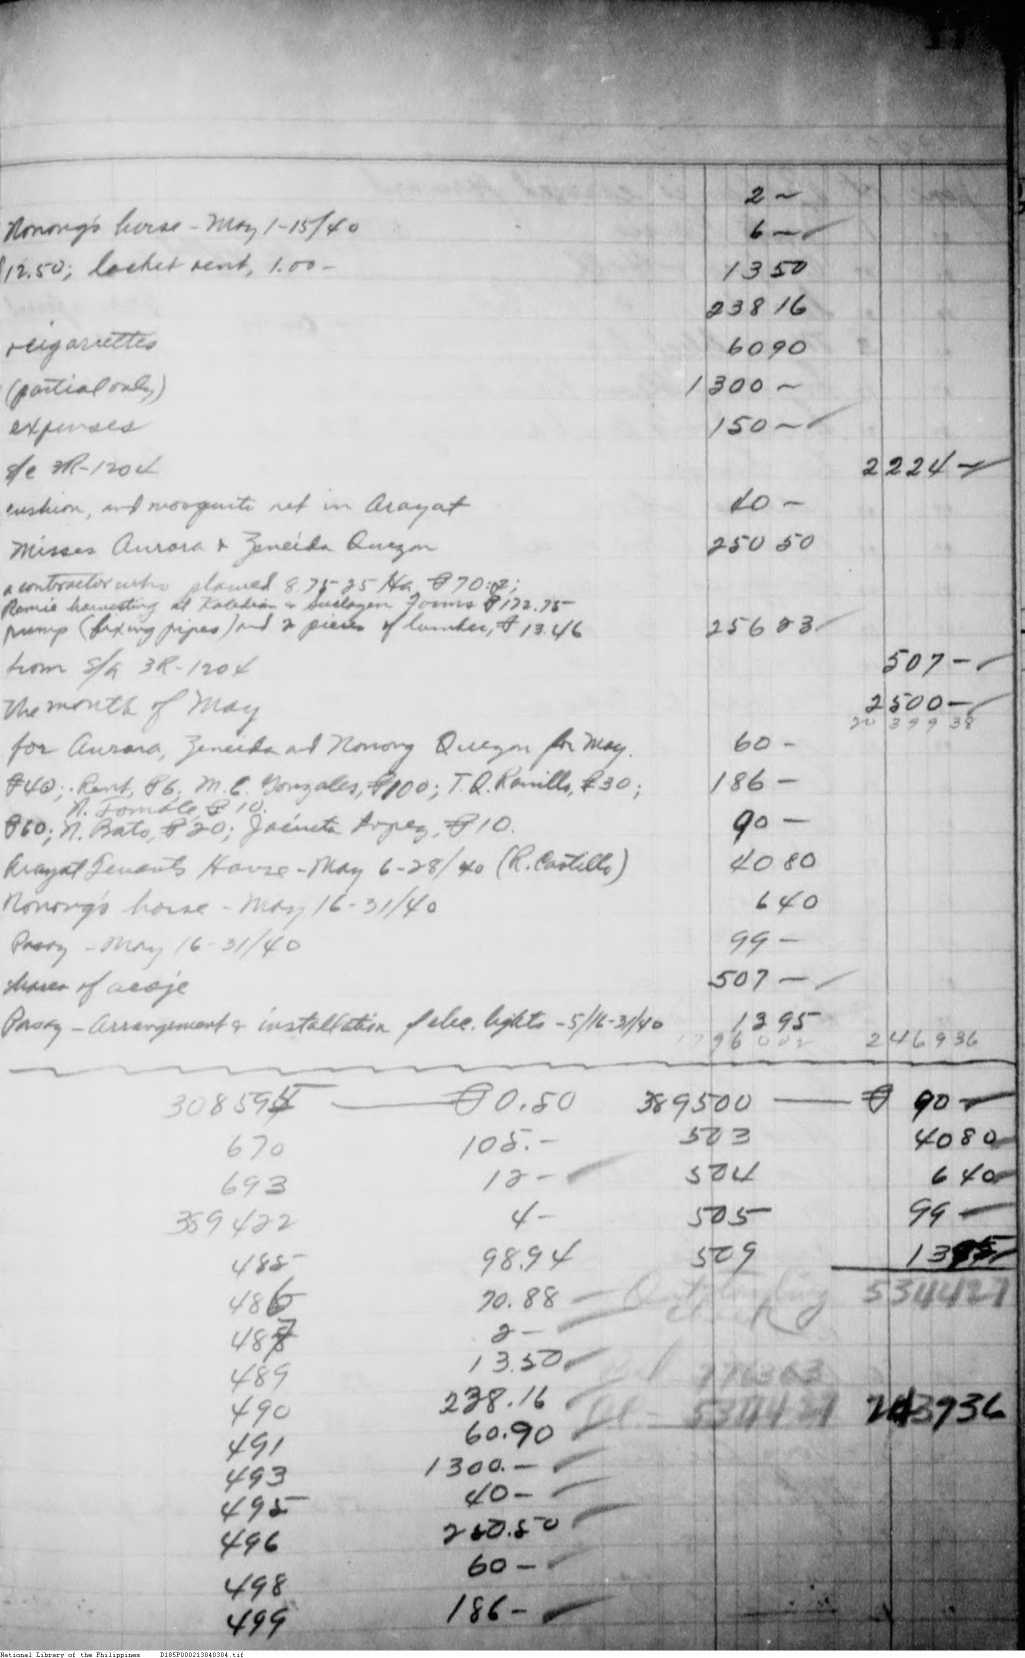 2 –
Nonong's horse - May 1-15/40 6 –
12.50; locket rent, 1.00 – 13 50
238 16
cigarettes 60 90
(partial only) 1300 –
expenses 150 –
s/c 3R-1204 2224 –
cushion, and mosquito net in Arayat 40 –
Misses Aurora & Zeneida Quezon 250 50
a contractor who plowed 8.75-25 Ha, ₱70.02;
Ramie harvesting at Kaledian & Buclagen Farms ₱172.75
pump (fixing pipes) and 2 pieces of lumber, ₱13.46 256 23
from S/A 3R-1204 507 –
the month of May 2500 –
20 399 38
for Aurora, Zeneida and Nonong Quezon for May. 60 –
₱40; Rent, ₱6; M.C. Gonzales, ₱100; T.Q. Ramillo, ₱30; 186 –
N. ₱10.
₱60; N. Bato, ₱20; Jacinta Lopez, ₱10. 90 –
Arayat Tenants House - May 6-28/40 (R. Castillo) 40 80
Nonong's horse - May 16-31/40 6 40
Pasay - May 16-31/40 99 –
shares of acoje 507 –
Pasay - Arrangement & installation of elec. lights - 5/16-31/40 13 95
2469 36
308595 — ₱0.50 389500 — ₱ 90 –
670 105.– 503 40 80
693 12 – 504 6 40
389422 4 – 505 99 –
485 98.94 509 13 95
486 70.88 Outstanding 5344 27
487 2 – checks
489 13.50 7763 63
490 238.16 5344 27 2439 36
491 60.90
493 1300.–
495 40 –
496 250.50
498 60 –
499 186 –
National Library of the Philippines D185P000213840384.tif